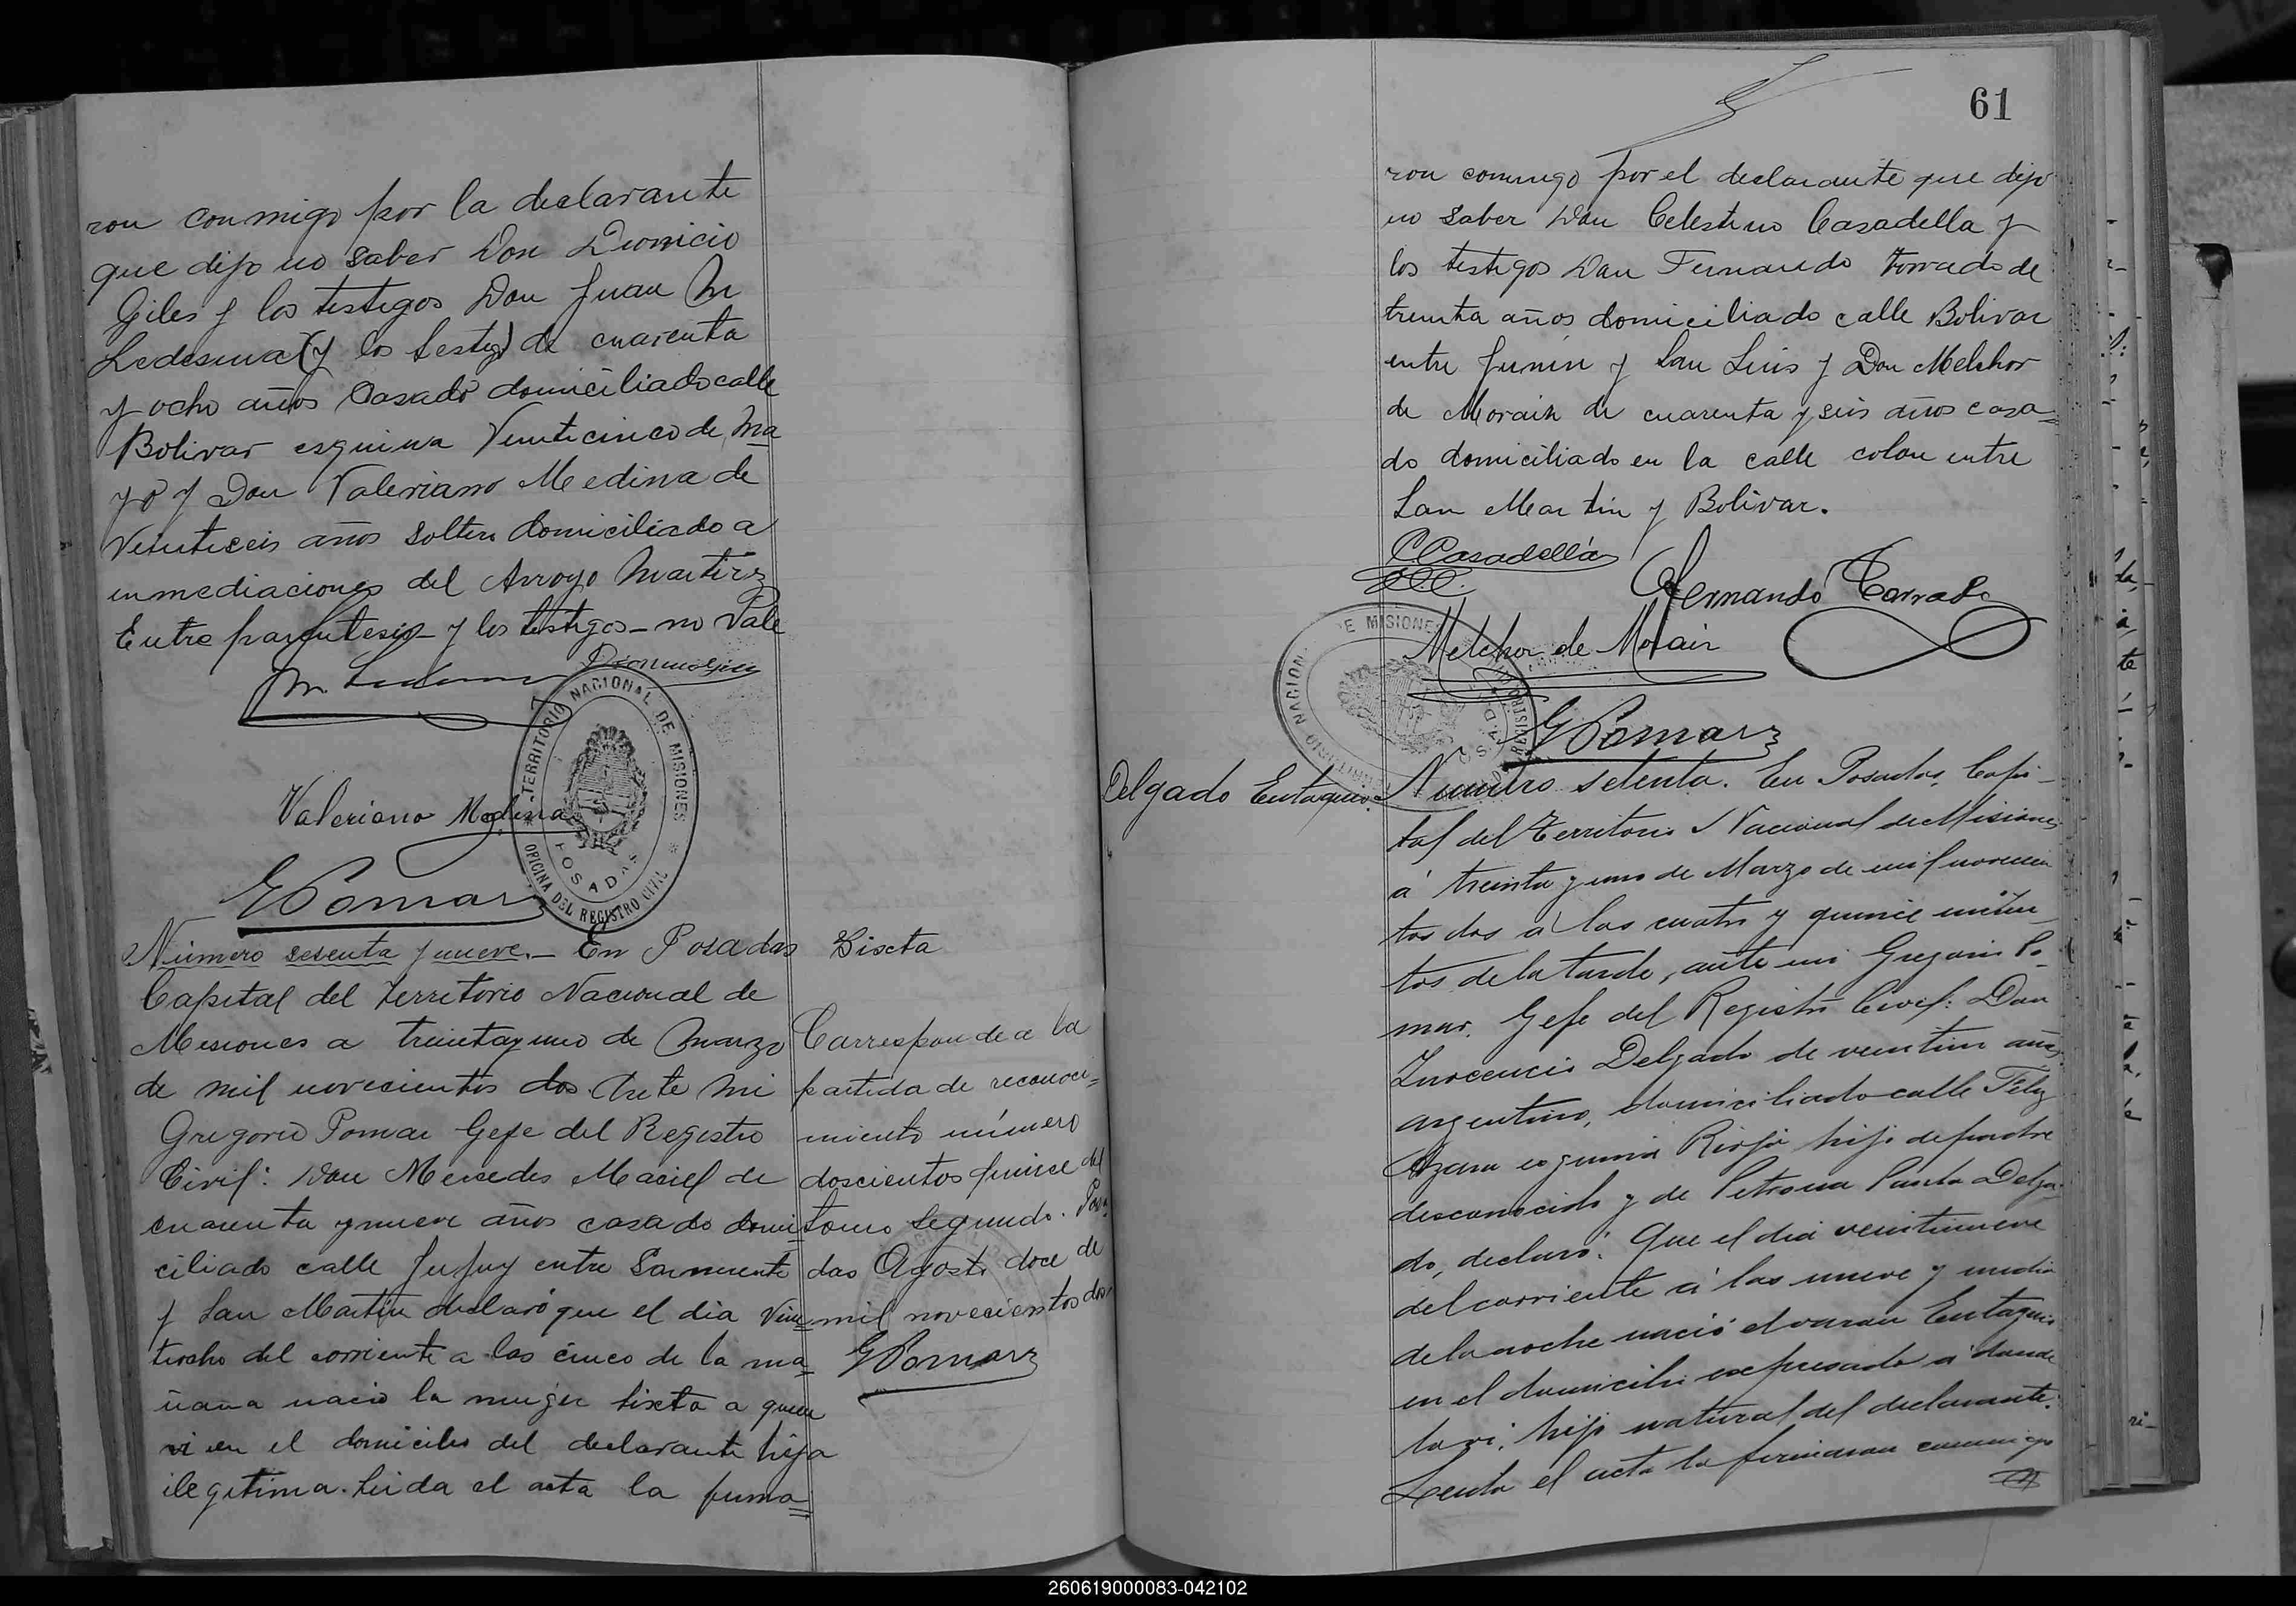 ron conmigo por la declarante
que dijo no saber Don Dionicio
Giles y los testigos Don Juan M
Ledesma (y los testig) de cuarenta
y ocho años casado domiciliado calle
Bolivar esquina Veinticinco de Ma
yo y Don Valeriano Medina de
Veinticeis años soltero domiciliado a
inmediaciones del Arroyo Martirez
Entre parentesis - y los testigos - no Vale
TERRITORIO NACIONAL DE MISIONES
POSADAS
OFICINA DEL REGISTRO CIVIL
Valeriano Medina
G Pomar
Número sesenta y nueve.- En Posadas
Capital del Territorio Nacional de
Misiones a treintayuno de Marzo
de mil novecientos dos. Ante mi
Gregorio Pomar Gefe del Registro
Civil: Don Mercedes Maciel de
cuarenta y nueve años casado domi
ciliado calle Jujuy entre Sarmiento
y San Martin declaró que el dia Vein
tiocho del corriente a las cinco de la ma
ñana nació la mujer Sixta a quien
vi en el domicilio del declarante hija
ilegitima. Leida el acta la firma
Sixta
Correspon de a la
partida de reconoci=
miento número
doscientos quince del
tomo segundo. Posa
das Agosto doce de
mil novecientos dos.
G Pomar
61
ron conmigo por el declarante que dijo
no saber Don Celestino Casadella y
los testigos Don Fernando Torrado de
treinta años domiciliado calle Bolivar
entre Junin y San Luis y Don Melchor
de Morain de cuarenta y seis años casa=
do domiciliado en la calle colon entre
San Martin y Bolivar.
C Casadella
Fernando Torrado
Melchor de Morain
G Pomar
Delgado Eutaquio.
Número setenta. En Posadas, Capi-
tal del Territorio Nacional de Misiones
á treinta y uno de Marzo de mil novecien
tos dos a las cuatro y quince minu
tos de la tarde, ante mi Gregorio Po-
mar, Gefe del Registro Civil: Don
Inocencio Delgado de veintiun años
argentino, domiciliado calle Felix
Azara esquina Rioja hijo de padre
desconocido y de Petrona Paula Delga-
do, declaró: Que el dia veintinueve
del corriente á las nueve y media
de la noche nació el varon Eutaquio
en el domicilio expresado á donde
lo vi, hijo natural del declarante.
Leida el acta la firmaron conmigo
260619000083-042102